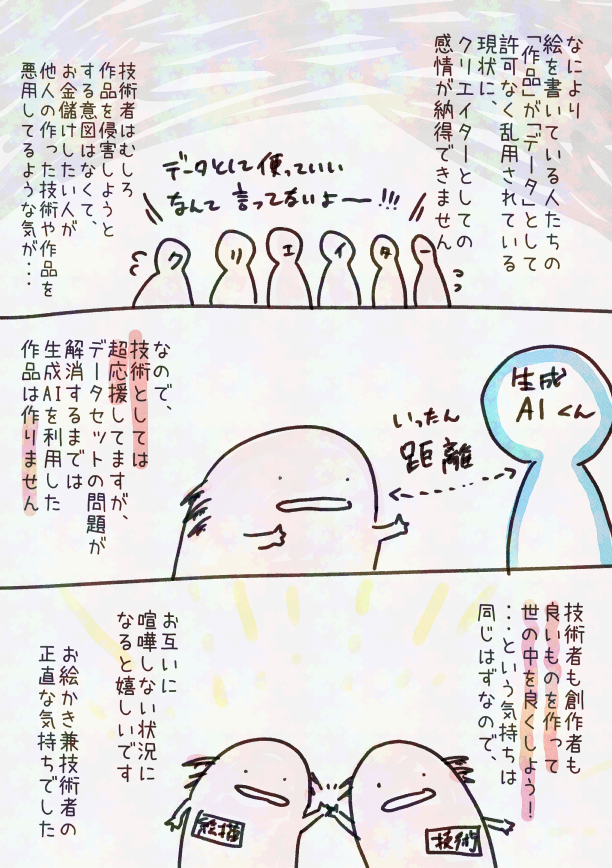 なにより
絵を書いている人たちの
「作品」が「データ」として
許可なく乱用されている
現状に、
クリエイターとしての
感情が納得できません
データとして使っていい
なんて言ってないよー!!!
クリエイター
技術者はむしろ
作品を侵害しようと
する意図はなくて、
お金儲けしたい人が
他人の作った技術や作品を
悪用してるような気が・・・
生成
AIくん
いったん
距離
なので、
技術としては
超応援してますが、
データセットの問題が
解消するまでは
生成AIを利用した
作品は作りません
技術者も創作者も
良いものを作って
世の中を良くしよう!
・・・という気持ちは
同じはずなので、
お互いに
喧嘩しない状況に
なると嬉しいです
お絵かき兼技術者の
正直な気持ちでした
絵描
技術